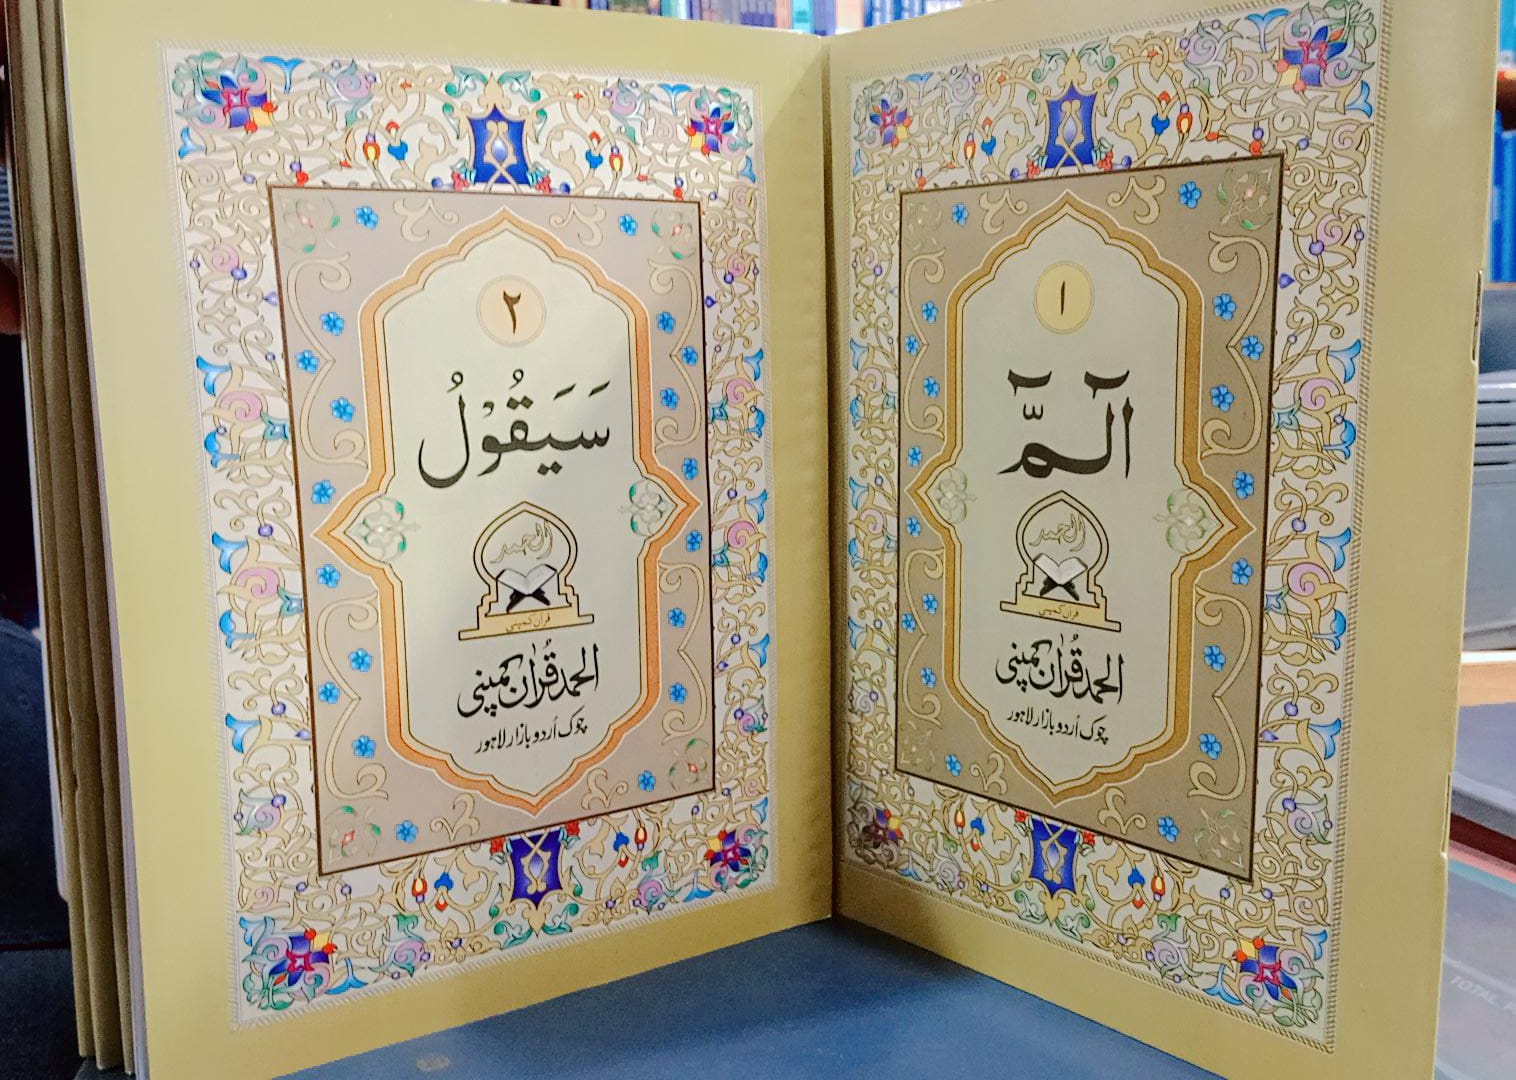 ١
الٓمّٓ
الحمد
قرآن کمپنی
الحمد قُرآن کمپنی
چوک اُردو بازار لاہور
٢
سَيَقُوْلُ
الحمد
قرآن کمپنی
الحمد قُرآن کمپنی
چوک اُردو بازار لاہور
TOTAL